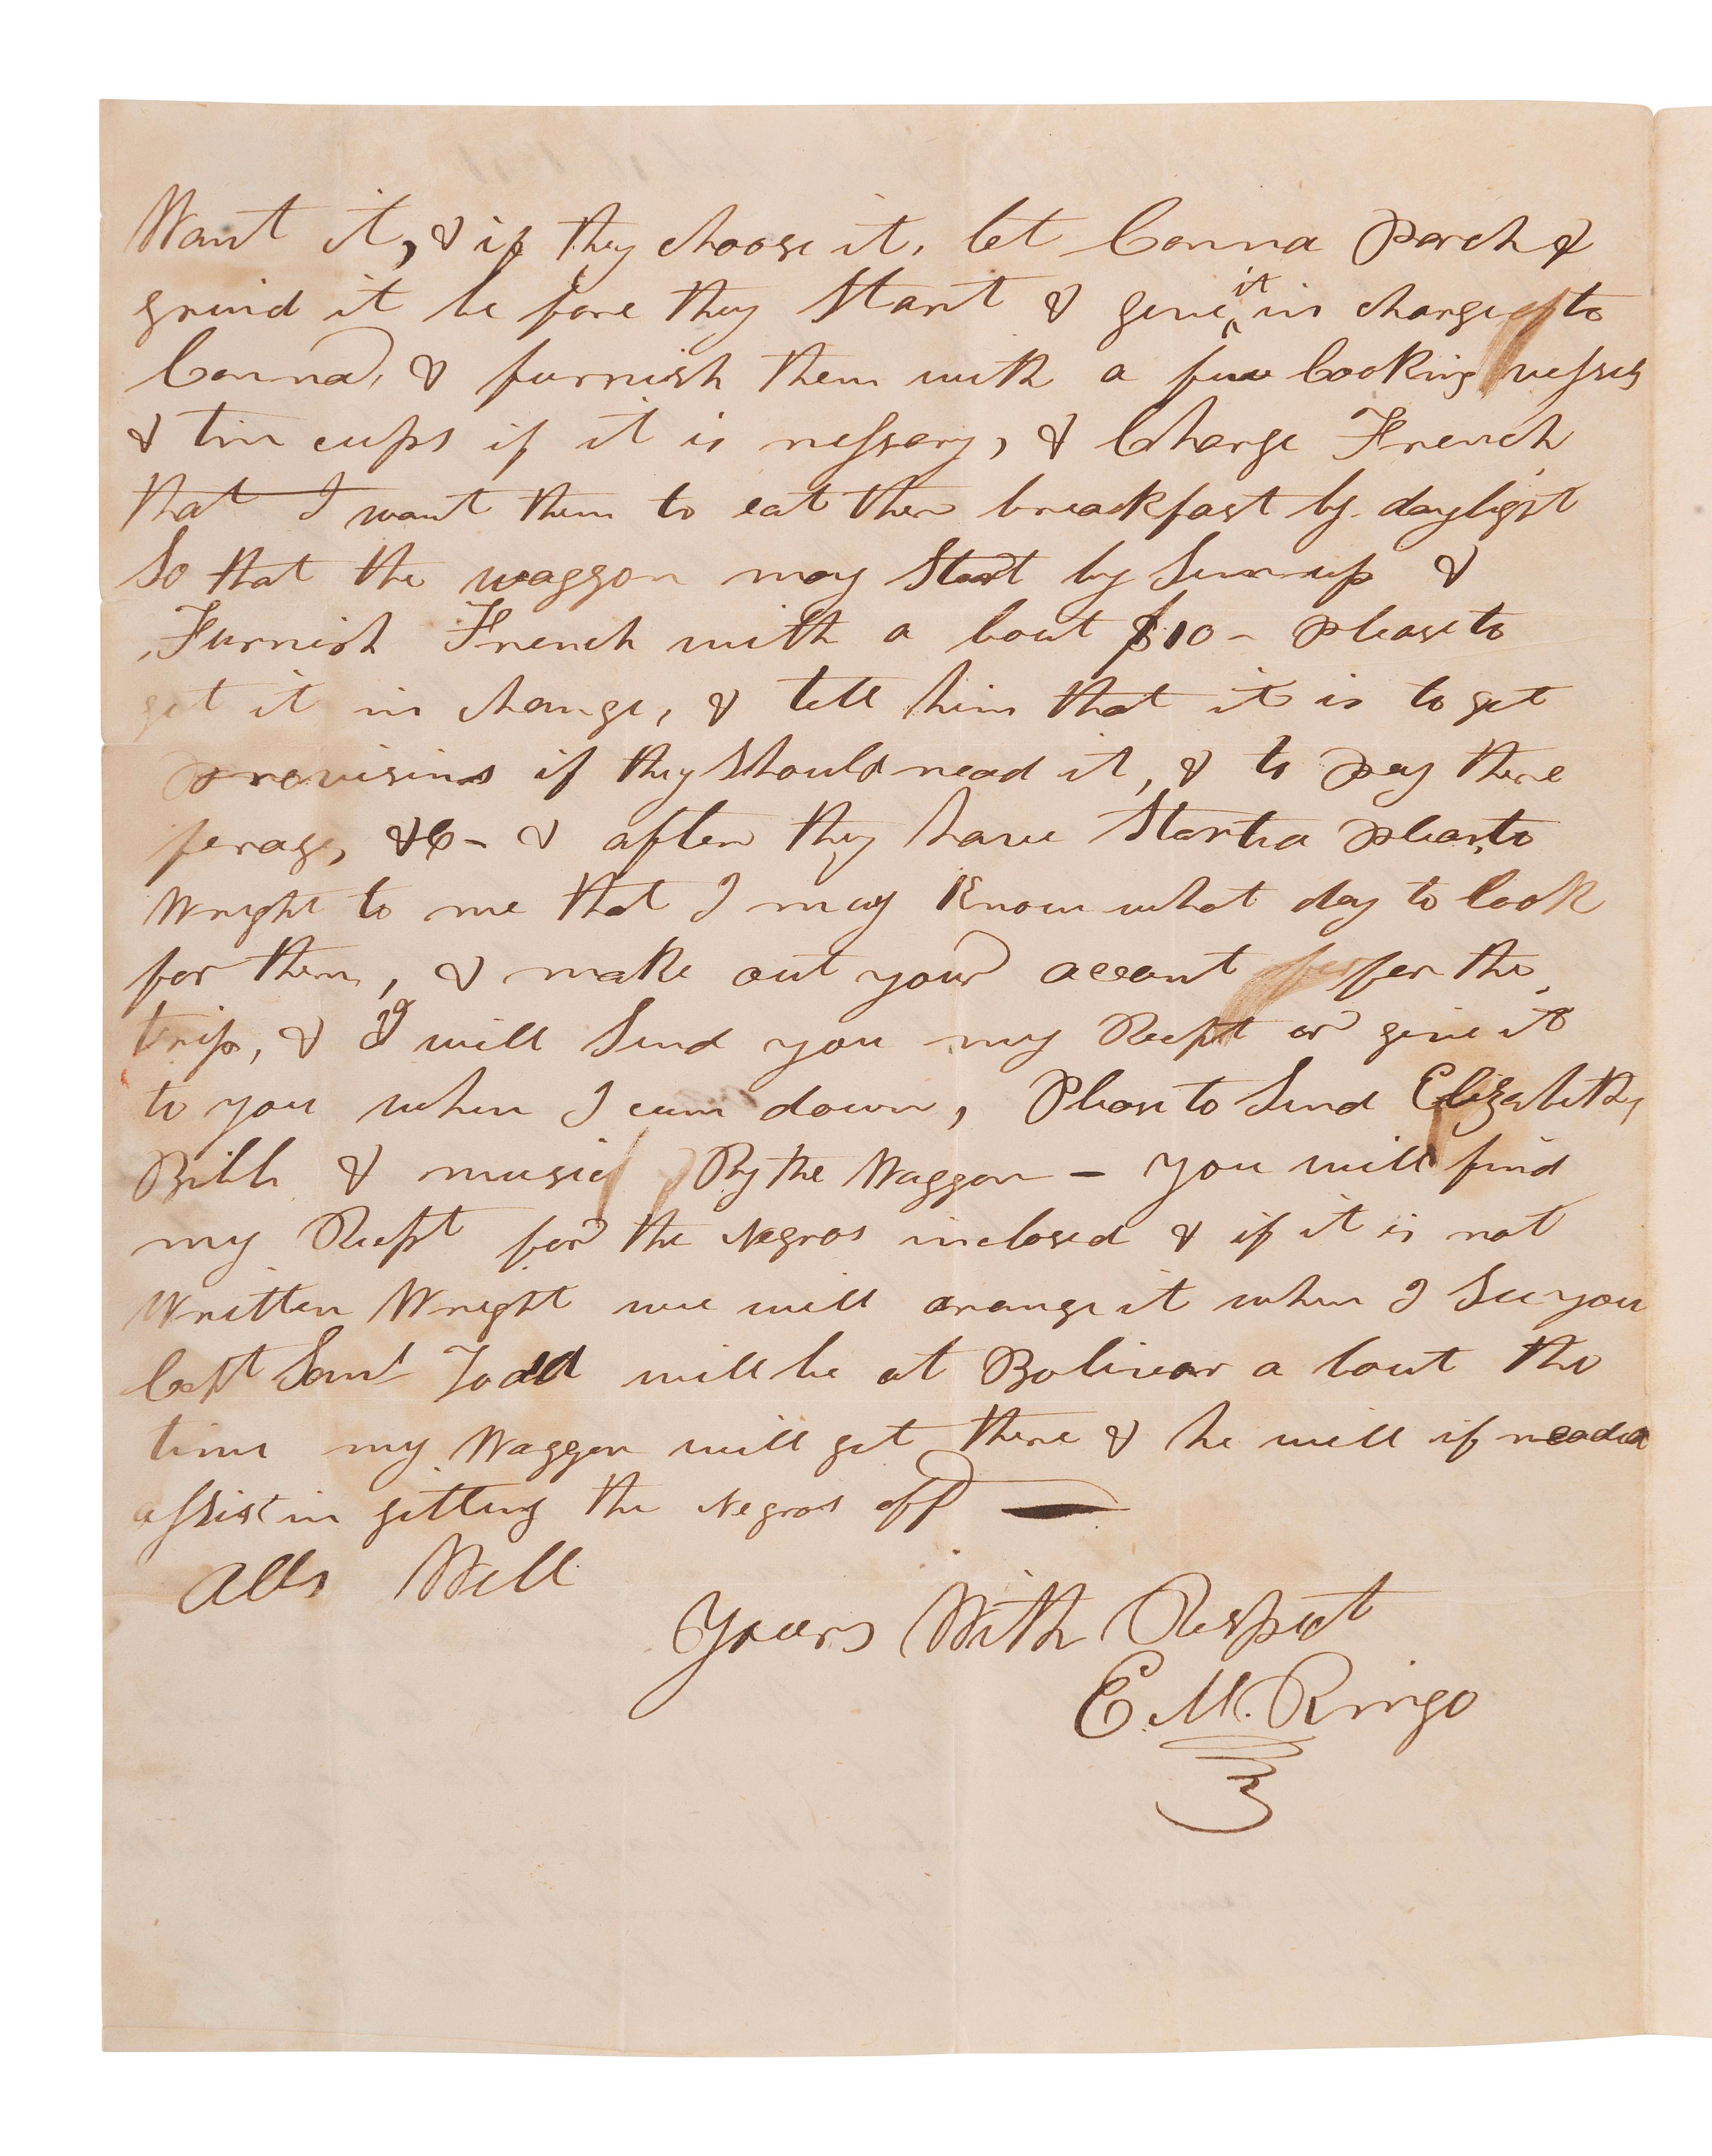 Want it, & if they choose it, let Conna parch &
grind it be fore they Start & give it in charge to
Conna, & furnish them with a few Cooking vessels
& tin cups if it is nessary, & Charge French
that I want them to eat ther breakfast by daylight
So that the waggon may Start by Sunup &
Furnish French with a bout $10 - please to
get it in change, & tell him that it is to get
provisins if they Should nead it, & to pay there
ferage, &C - & after they have Started pleas to
Wright to me that I may Know what day to look
for them, & make out your account for the
trip, & I will Send you my Recpt or give it
to you when I cum down, Pleas to Send Elizabeths
Bible & music By the Waggon - you will find
my Recpt for the Negros inclosed & if it is not
Written Wright wee will arange it when I See you
Capt Saml Todd will be at Bolivar a bout the
time my Waggon will get there & he will if neaded
assist in gitting the Negros off —
Alls Well
Yours With Respect
E. M. Ringo